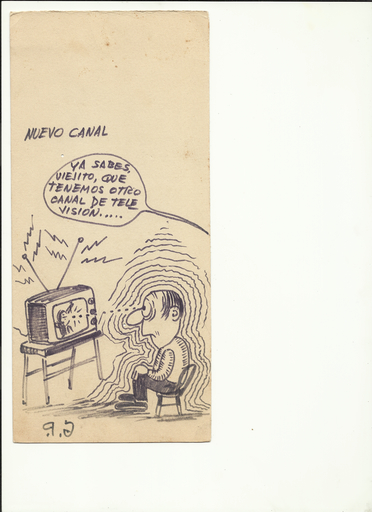 NUEVO CANAL
YA SABES,
VIEJITO, QUE
TENEMOS OTRO
CANAL DE TELE
VISION.....